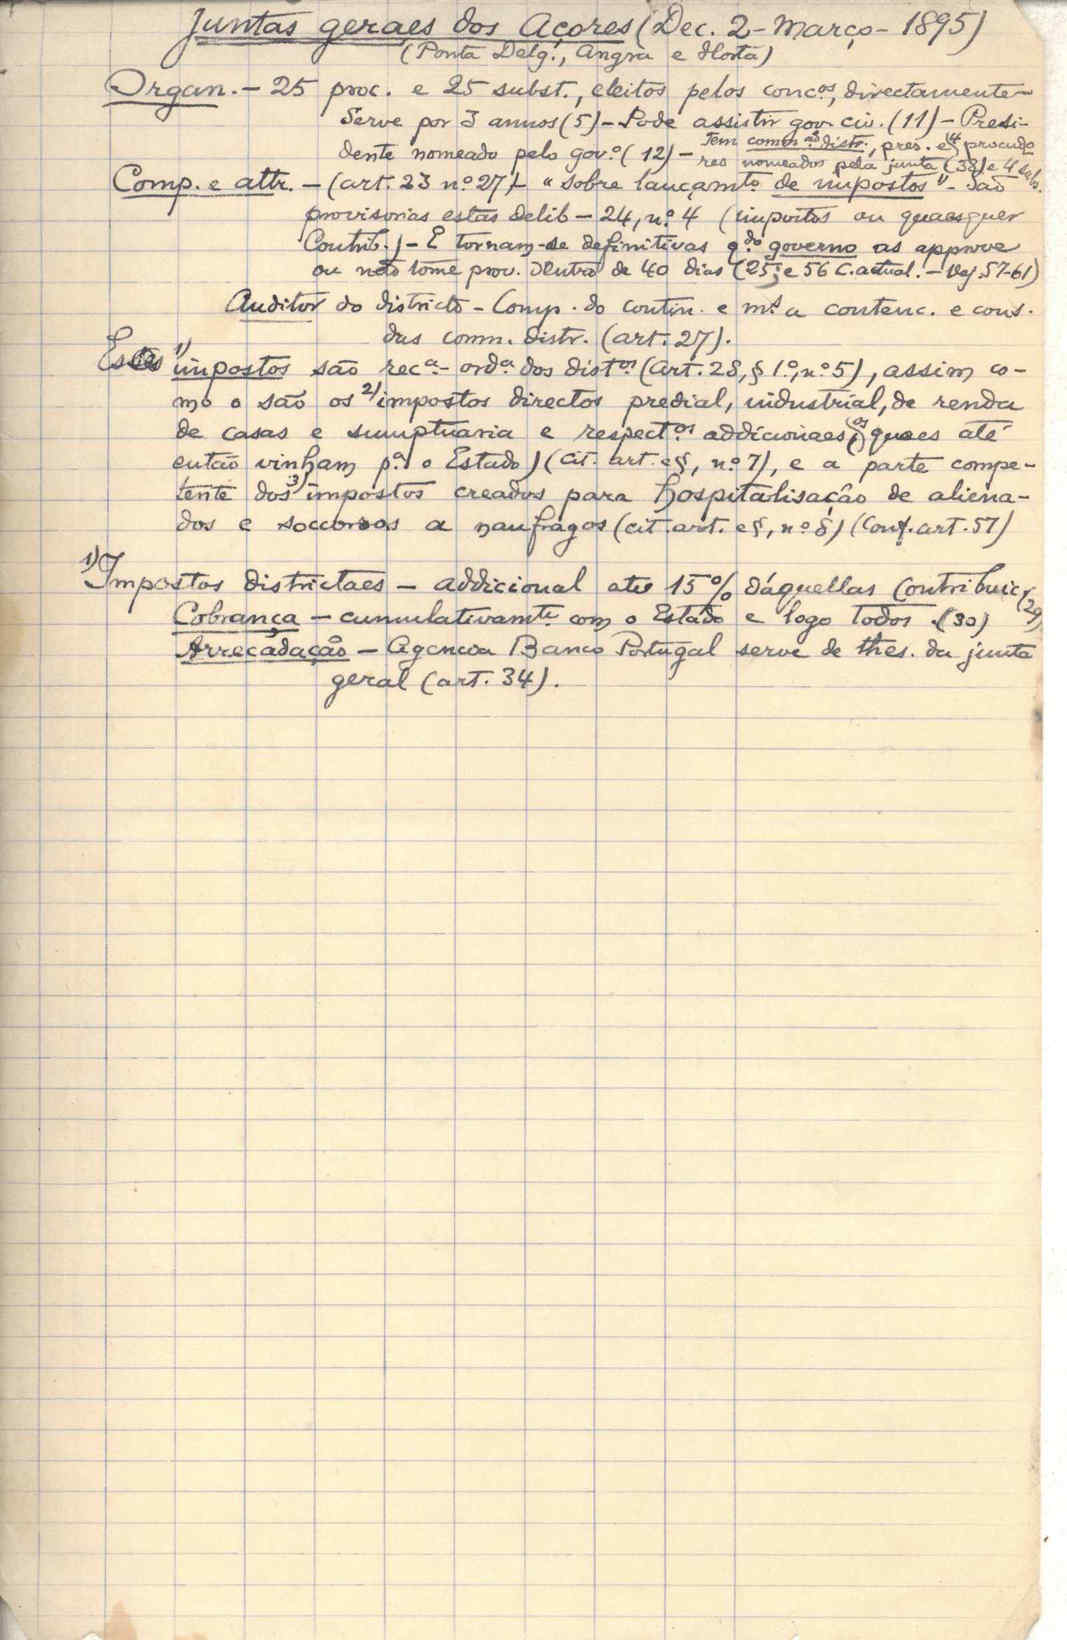 Juntas geraes dos Açores (Dec. 2 - Março - 1895)
(Ponta Delg., Angra e Horta)
Organ. - 25 proc. e 25 subst., eleitos pelos conc.os, directamente -
Serve por 3 annos (5) - Pode assistir gov. civ. (11) - Presi-
dente nomeado pelo gov.º (12) - Tem comm.ão distr., pres. e 4 procudo
res nomeados pela junta (38) e 4 subs.
Comp. e attr. - (art. 23 nº 27) - "sobre lançamto. de impostos" - São
provisorias estas delib - 24, n.º 4 (impostos ou quaesquer
Contrib.) - E tornam-se definitivas q.do governo as approve
ou não tome prov. dentro de 40 dias (25; e 56 C. actual. - Vej. 57-61)
Auditor do districto - Comp. do contin. e m.s a contenc. e cons.
das comm. distr. (art. 27).
Estes 1) impostos são rec.a ord.a dos dist.os (art. 28, § 1.º, nº 5), assim co-
mo o são os 2) impostos directos predial, industrial, de renda
de casas e sumptuaria e respect.os addicionaes (os quaes até
então vinham p.a o Estado) (cit. art. e §, nº 7), e a parte compe-
tente dos 3) impostos creados para hospitalisação de aliena-
dos e soccorros a naufragos (cit. art. e §, nº 8) (Conf. art. 57)
1) Impostos districtaes - addicional até 15% dáquellas Contribuiç. (29)
Cobrança - cumulativamte. com o Estado e logo todos. (30)
Arrecadação - Agencia Banco Portugal serve de thes. da junta
geral (art. 34).